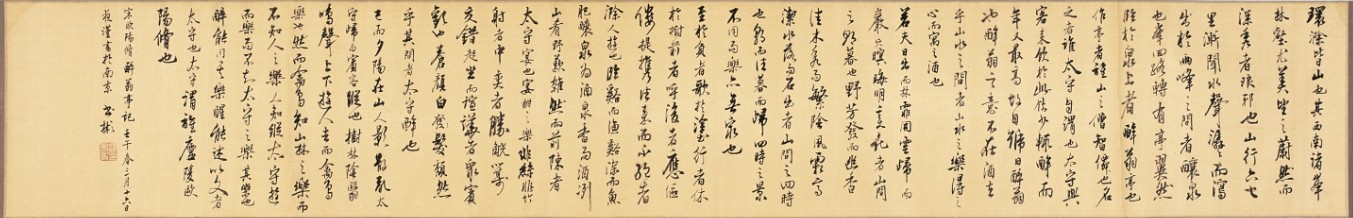 環滁皆山也其西南諸峯
林壑尤美望之蔚然而
深秀者琅邪也山行六七
里漸聞水聲潺々而瀉
出於兩峰之間者釀泉
也峯回路轉有亭翼然
臨於泉上者醉翁亭也
作亭者誰山之僧智僊也名
之者誰太守自謂也太守與
客來飲於此飲少輒醉而
年又最高故自號曰醉翁
也醉翁之意不在酒在
乎山水之間者山水之樂得之
心而寓之酒也
若夫日出而林霏開雲歸而
巖穴暝晦明變化者山間
之朝暮也野芳發而幽香
佳木秀而繁陰風霜高
潔水落而石出者山間之四時
也朝而往暮而歸四時之景
不同而樂亦無窮也
至於負者歌於塗行者休
於樹前者呼後者應傴
僂提攜往來而不絕者
滁人遊也臨谿而漁谿深而魚
肥釀泉為酒泉香而酒冽
山肴野蔌雜然而前陳者
太守宴也宴酣之樂非絲非竹
射者中奕者勝觥籌
交錯起坐而諠譁者衆賓
歡也蒼顏白髮頹然
乎其間者太守醉也
已而夕陽在山人影散亂太
守歸而賓客從也樹林陰翳
鳴聲上下遊人去而禽鳥
樂也然而禽鳥知山林之樂而
不知人之樂人知從太守遊
而樂而不知太守之樂其樂也
醉能同其樂醒能述以文者
太守也太守謂誰廬陵歐
陽脩也
宋歐陽脩醉翁亭記 壬午春三月十六日
謹書於南京 彬